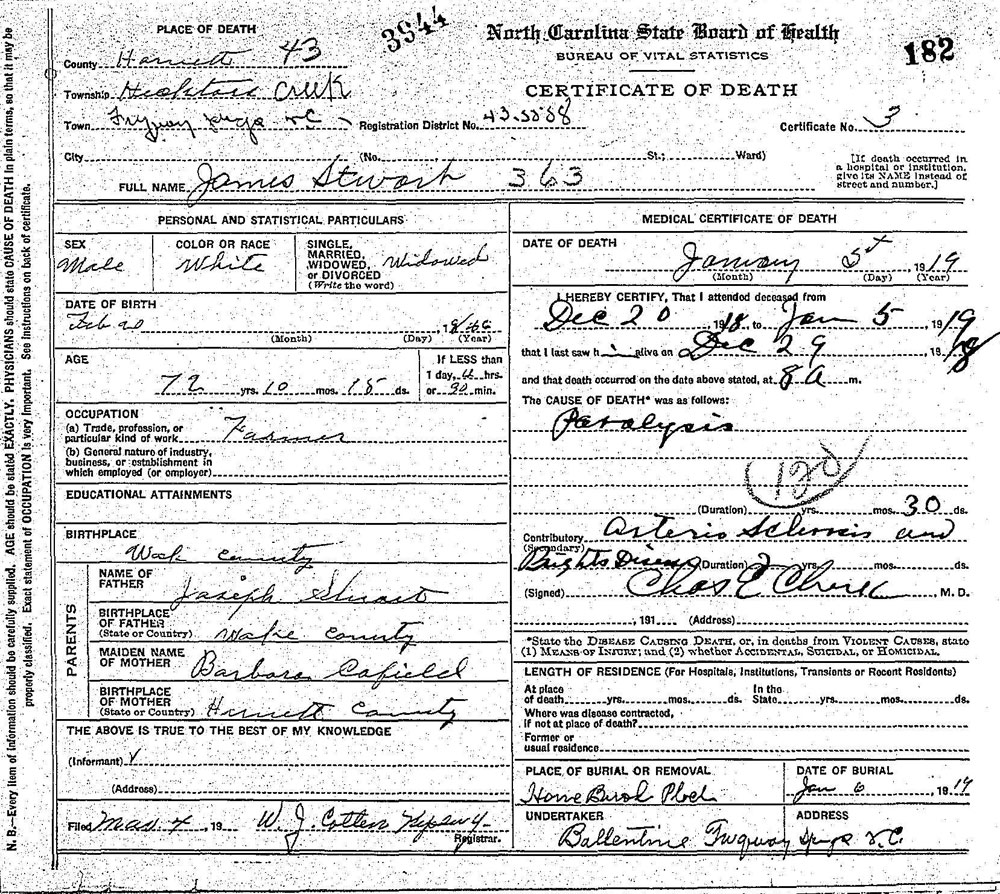 N. B.—Every item of information should be carefully supplied. AGE should be stated EXACTLY. PHYSICIANS should state CAUSE OF DEATH in plain terms, so that it may be
properly classified. Exact statement of OCCUPATION is very important. See instructions on back of certificate.
3944
182
North Carolina State Board of Health
BUREAU OF VITAL STATISTICS
CERTIFICATE OF DEATH
PLACE OF DEATH
County Harnett 43
Township Hectors Creek
Town N C Registration District No. 43-5588 Certificate No. 3
City (No. St.; Ward)
[If death occurred in
a hospital or institution,
give its NAME instead of
street and number.]
FULL NAME James Stwart 363
PERSONAL AND STATISTICAL PARTICULARS
SEX
Male
COLOR OR RACE
White
SINGLE,
MARRIED,
WIDOWED,
or DIVORCED
(Write the word)
Widowed
DATE OF BIRTH
Feb 20
(Month) (Day) (Year)
AGE
72 yrs. 10 mos. 15 ds.
If LESS than
1 day, hrs.
or min.
OCCUPATION
(a) Trade, profession, or
particular kind of work Farmer
(b) General nature of industry,
business, or establishment in
which employed (or employer)
EDUCATIONAL ATTAINMENTS
BIRTHPLACE
Wak county
PARENTS
NAME OF
FATHER
Joseph Stuart
BIRTHPLACE
OF FATHER
(State or Country) Wake County
MAIDEN NAME
OF MOTHER
Barbara Cofield
BIRTHPLACE
OF MOTHER
(State or Country) Harnett County
THE ABOVE IS TRUE TO THE BEST OF MY KNOWLEDGE
(Informant)
(Address)
Filed Mar 4, 19 W. J. Cotten
Registrar.
MEDICAL CERTIFICATE OF DEATH
DATE OF DEATH
January 5, 1919
(Month) (Day) (Year)
I HEREBY CERTIFY, That I attended deceased from
Dec 20 1918 to Jan 5 1919
that I last saw h i alive on Dec 29 1918
and that death occurred on the date above stated, at 8 a m.
The CAUSE OF DEATH* was as follows:
Paralysis
120
(Duration) yrs. mos. 30 ds.
Contributory Arterio Sclerosis and
(Secondary)
Brights Disease (Duration) 2 yrs. mos. ds.
(Signed) Chas E M. D.
, 191 (Address)
*State the DISEASE CAUSING DEATH, or, in deaths from VIOLENT CAUSES, state
(1) MEANS OF INJURY; and (2) whether ACCIDENTAL, SUICIDAL, or HOMICIDAL.
LENGTH OF RESIDENCE (For Hospitals, Institutions, Transients or Recent Residents)
At place
of death yrs. mos. ds.
In the
State yrs. mos. ds.
Where was disease contracted,
if not at place of death?
Former or
usual residence
PLACE OF BURIAL OR REMOVAL
Home Burial
DATE OF BURIAL
Jan 6 1919
UNDERTAKER
Ballentine
ADDRESS
Fuquay Spgs N.C.